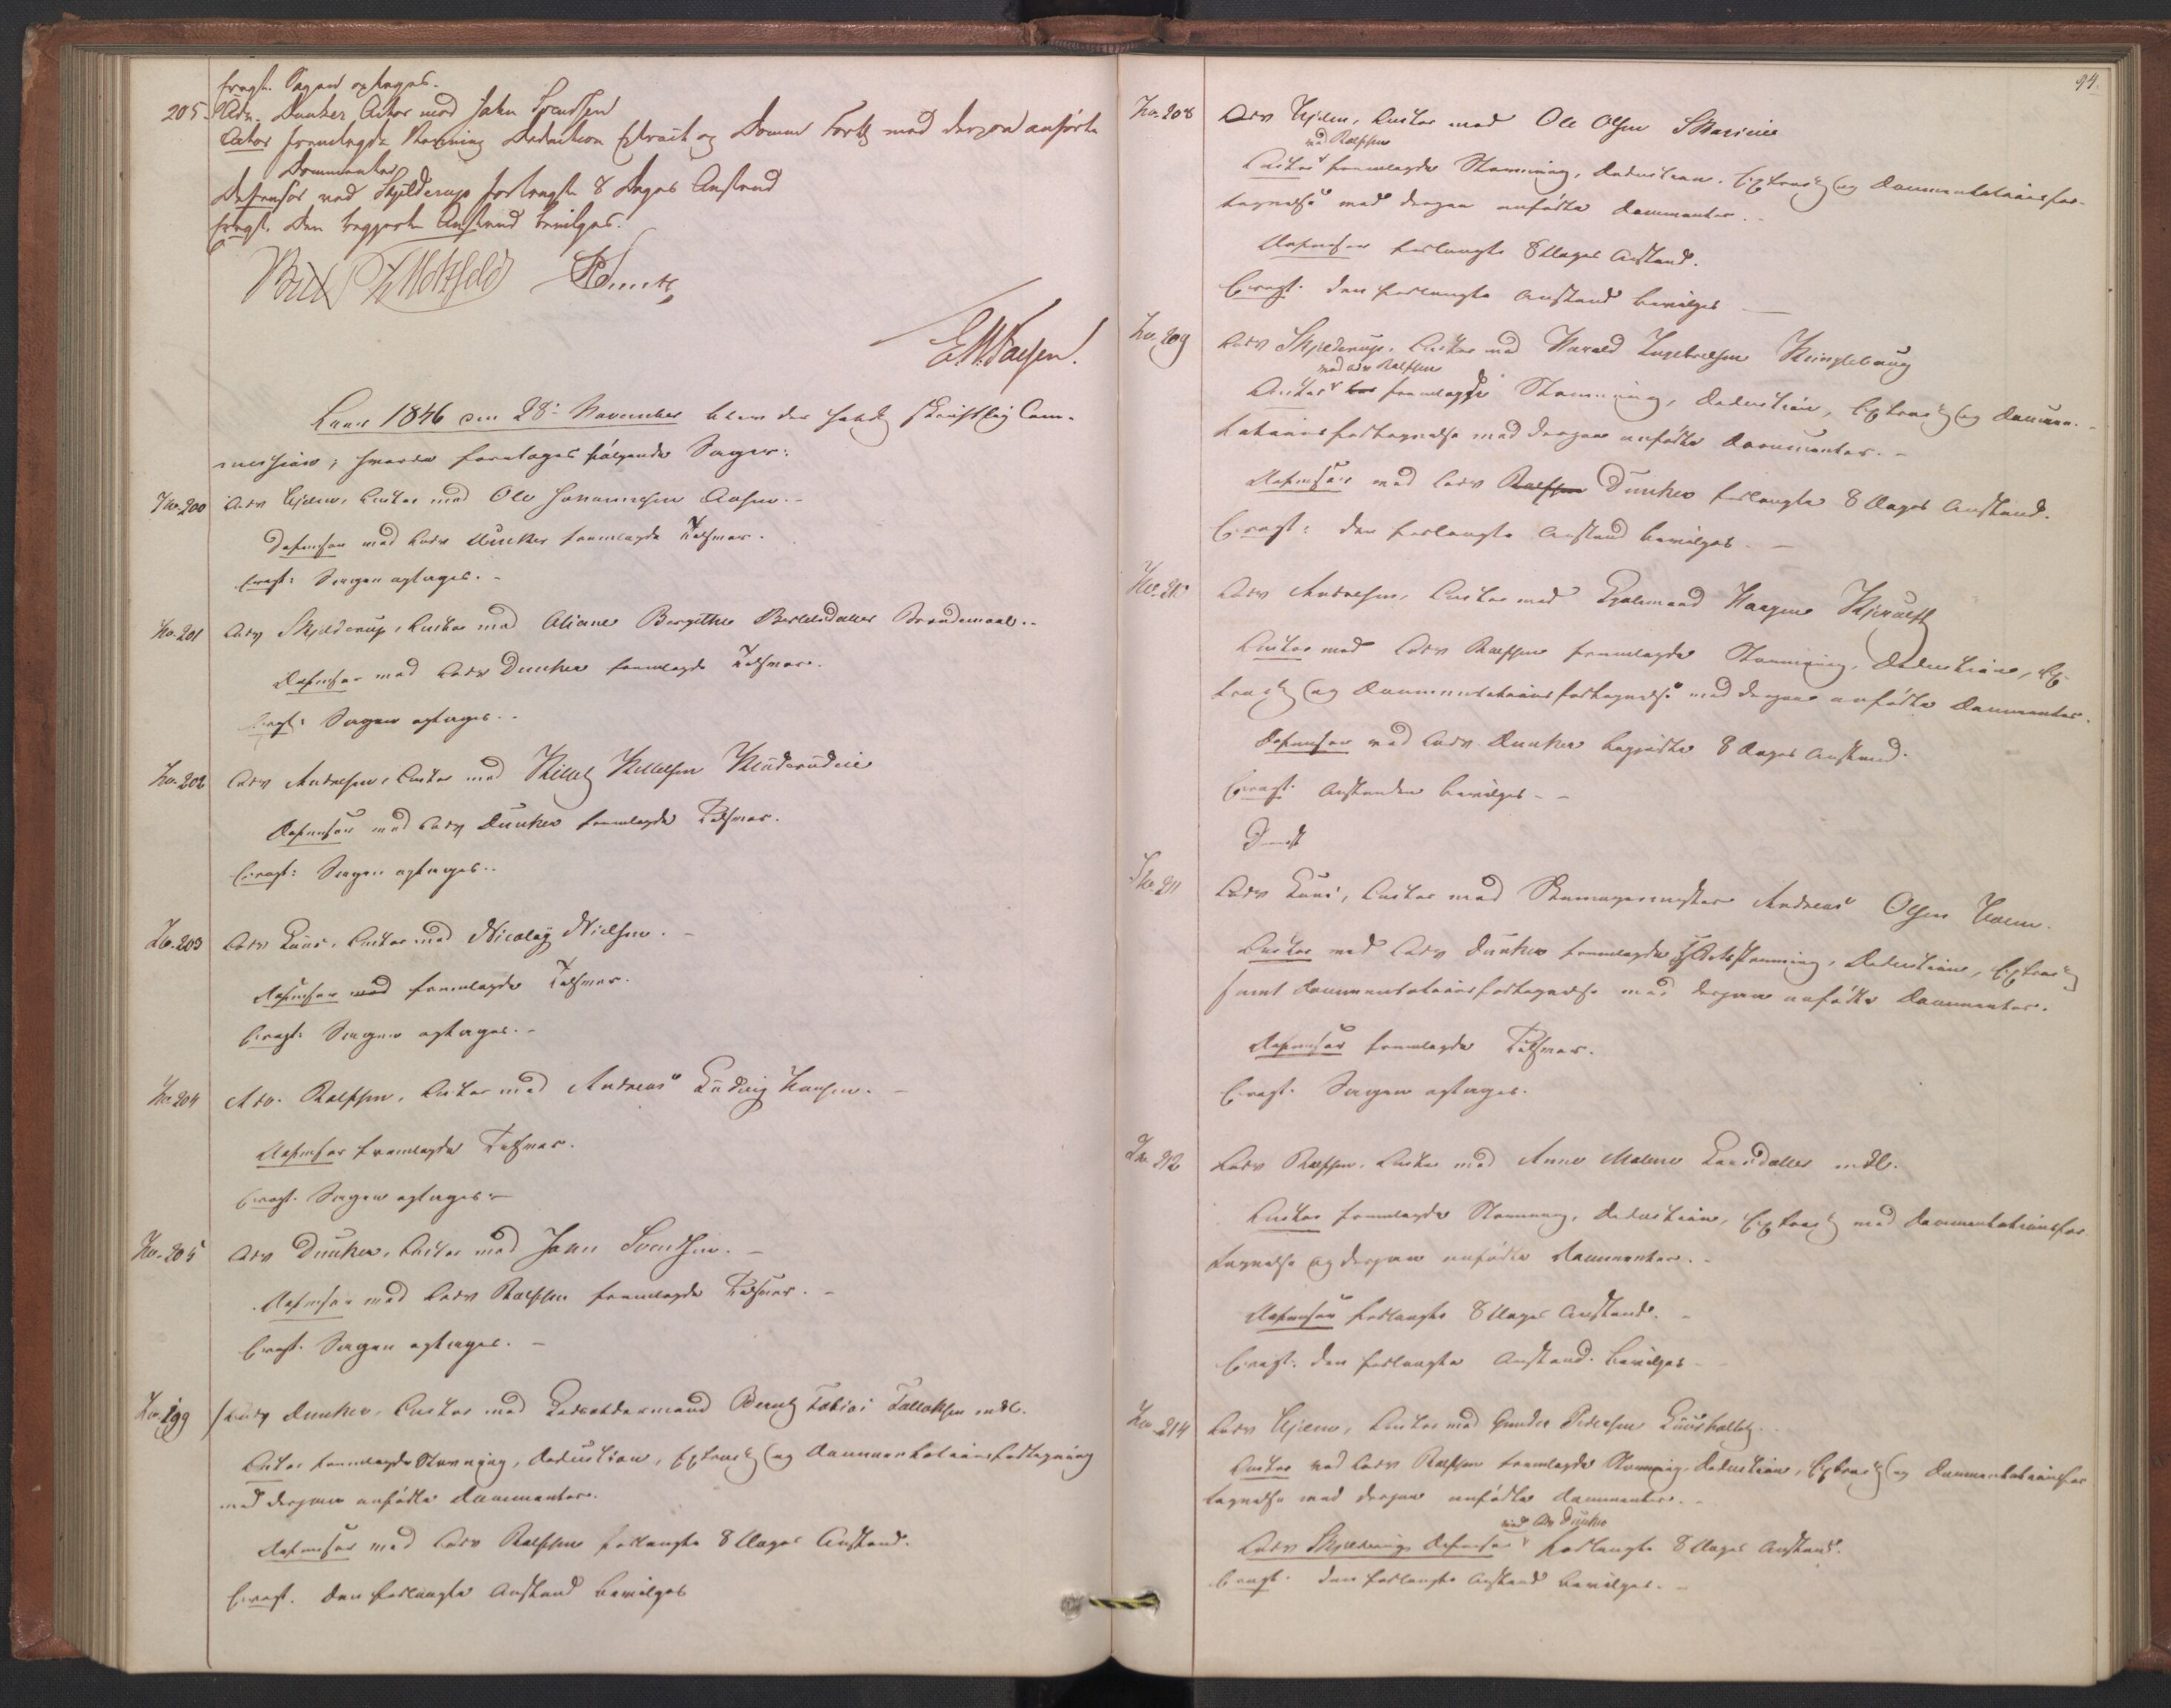 fragt. Sagen optages.
205. Adv. Dunker Actor mod John Svendsen
Actor fremlagde Stævning Deduction Extract og Docum Fortg med deri anførte
Documenter
Defensor ved Skjelderup forlangte 8 Dages Anstand
fragt. Den begjerte Anstand bevilges.
Aar 1846 den 28de November blev der holdt skriftlig Com-
mission, hvorda foretoges følgende Sager:
No. 200 Adv Hjelm, Actor mod Ole Johannesen Aasen.-
Defensor ved Adv Dunker fremlagde Tilsvar.
Eragt: Sagen optages.-
No. 201 Adv Skjelderup, Actor mod Oliane Bergithe Bertelsdatter
Defensor ved Adv Dunker fremlagde Tilsvar.
Eragt: Sagen optages.-
No. 202 Adv Andresen, Actor mod Kittelsen
Defensor ved Adv Dunker fremlagde Tilsvar.
Eragt: Sagen optages.-
No. 203 Adv Lous, Actor mod Nicolay Nielsen.-
Defensor fremlagde Tilsvar.
Eragt: Sagen optages.-
No. 204 Adv. Rolfsen, Actor mod Andreas Ludvig Hansen.-
Defensor fremlagde Tilsvar.
Eragt. Sagen optages.-
No. 205 Adv Dunker, Actor mod John Svendsen.-
Defensor ved Adv Rolfsen fremlagde Tilsvar.-
Eragt. Sagen optages.-
No. 199 Adv Dunker, Actor mod Bernt Tobias Tallaksen mfl.
Actor fremlagde Stævning, Deduction, Extract og Documentationsfortegning
med derpaa anførte Documenter.
Defensor ved Adv Rolfsen forlangte 8 Dages Anstand.
Eragt. Den forlangte Anstand bevilges
94.
No. 208 Adv Hjelm, Actor mod Ole Olsen
ved Rolfsen
Actor fremlagde Stævning, Deduction, Extract og Documentationsfor-
tegnelse med derpaa anførte Documenter.-
Defensor forlangte 8 Dages Anstand.
Eragt. Den forlangte Anstand bevilges
No. 209 Adv Skjelderup, Actor mod Harald Ingebretsen
ved Adv Rolfsen
Actor fremlagde Stævning, Deduction, Extract og Documen-
tationsfortegnelse med derpaa anførte Documenter.-
Defensor ved Adv Rolfsen Dunker forlangte 8 Dages Anstand.
Eragt: Den forlangte Anstand bevilges.-
No. 210 Adv Andresen, Actor mod Haagen
Actor ved Adv Rolfsen fremlagde Stævning, Deduction, Ex-
tract og Documentationsfortegnelse med derpaa anførte Documenter.
Defensor ved Adv. Dunker begjærte 8 Dages Anstand.
Eragt. Anstanden bevilges.-
No. 211 Adv Lous, Actor mod Andreas Olsen Holm.
Actor ved Adv Dunker fremlagde Stævning, Deduction, Extract
samt Documentationsfortegnelse med derpaa anførte Documenter.
Defensor fremlagde Tilsvar.
Eragt. Sagen optages.
No. 212 Adv Rolfsen, Actor mod Anne Malene Larsdatter mfl.
Actor fremlagde Stævning, Deduction, Extract med Documentationsfor-
tegnelse og derpaa anførte Documenter.-
Defensor forlangte 8 Dages Anstand.-
Eragt. Den forlangte Anstand bevilges
No. 214 Adv Hjelm, Actor mod Gunder Pedersen
Actor ved Adv Rolfsen fremlagde Stævning, Deduction, Extract og Documentationsfor
tegnelse med derpaa anførte Documenter.-
ved Adv Dunker
Adv Skjelderup Defensor forlangte 8 Dages Anstand.
Eragt. Den forlangte Anstand bevilges.-